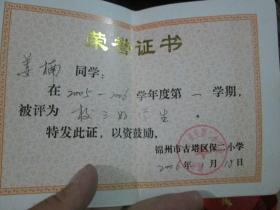 荣誉证书
姜楠 同学:
在 2005-2006 学年度第 一 学期,
被评为 校三好学生 。
特发此证,以资鼓励。
锦州市古塔区保二小学
2006年 月18日